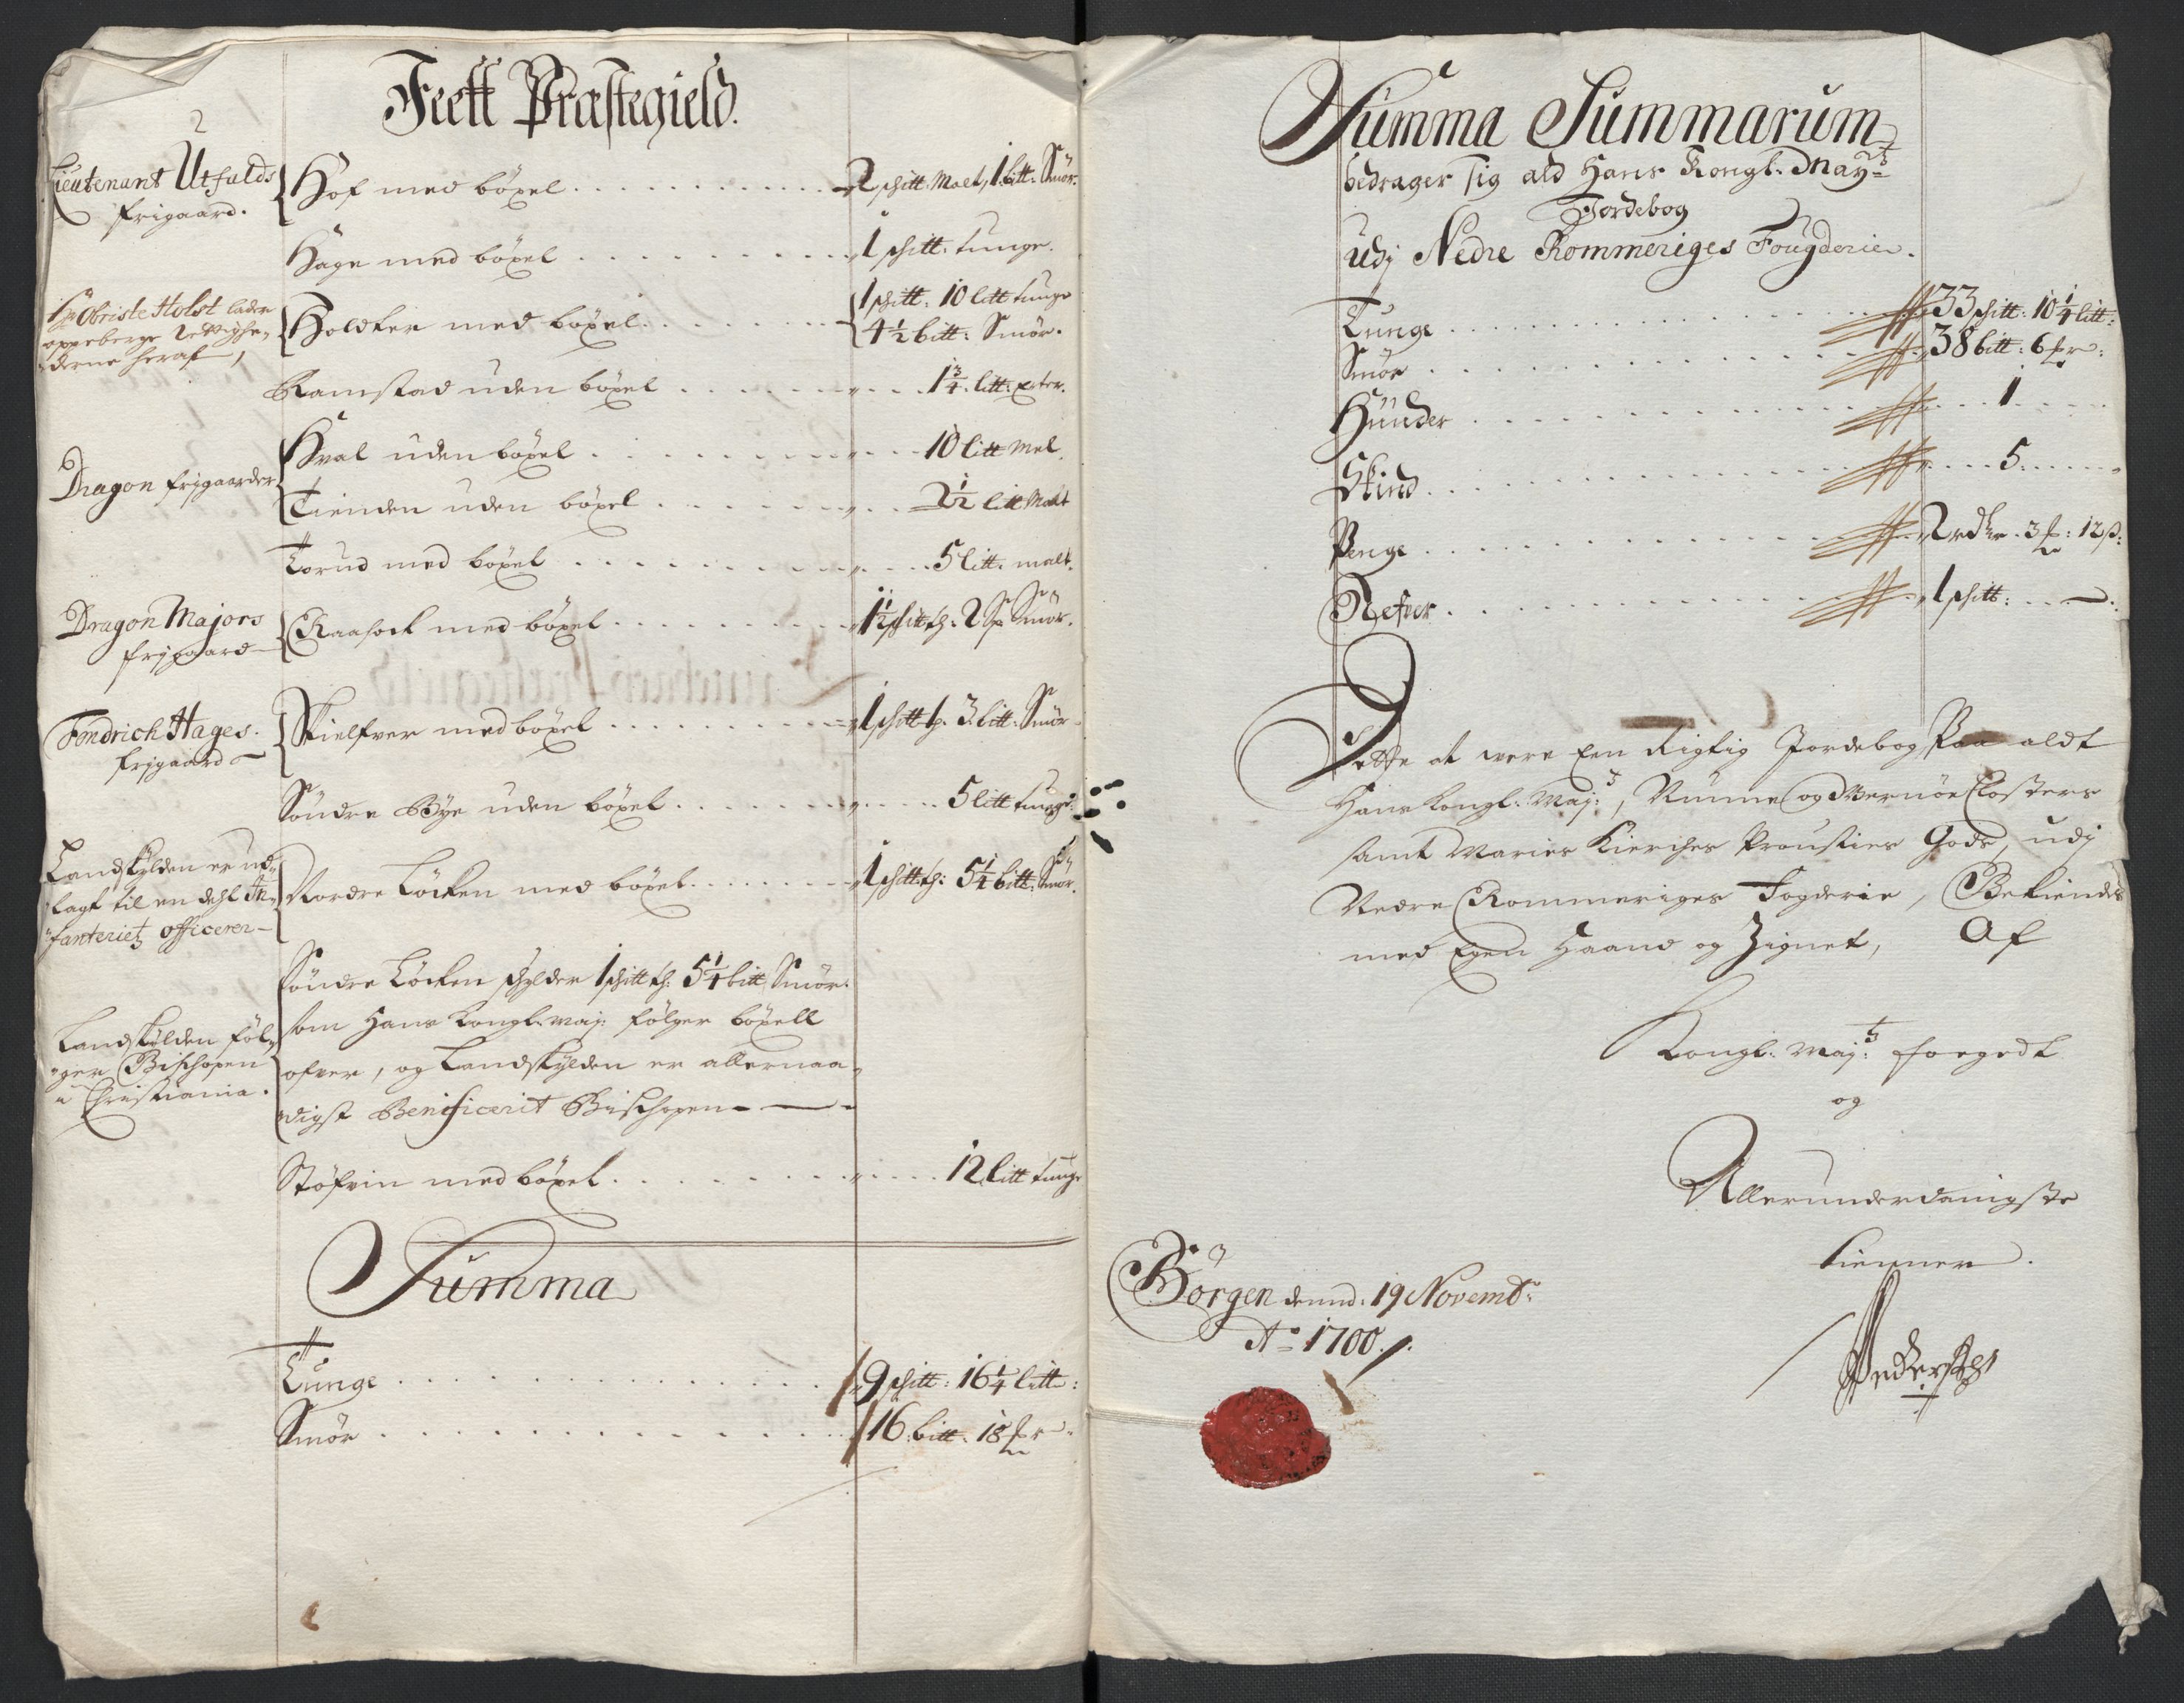 Feett Præstegield.
2
Lieutenant Utfalds
frigaard.
Hof med böxel 2 schitt Malt, 1 bitt: Smör.
Hage med böxel 1 schitt: tunge.
Hr Obriste Holst lader
oppeberge Rettighe-
derne heraf,
Holdter med böxel 1 schitt: 10 litt tunge
4½ bitt: Smör.
Ramstad uden böxel 1¾ litt:
Dragon frjgaarder
Hval uden böxel 10 litt Mel.
Tienden uden böxel 2½ litt Malt
Torud med böxel 5 litt. malt.
Dragon Majors
frjgaard
Raaholt med böxel 1½ schitt th: 2 Smör.
Fendrich Hages.
frjgaard
Skielfver med böxel 1 schitt th. 3 bitt: Smör
Söndre Bye uden böxel 5 litt tunge
Landskylden er ud-
lagt til en dehl In-
fanteriets officerer
Nordre Löcken med böxel 1 schitt th: 5¼ bitt: Smör.
Landskylden föl-
ger Bischopen
i Christiania.
Söndre Löcken schylder 1 schitt th: 5¼ bitt Smör.
som Hans Kongl. Maj: fölger böxell
ofver, og Landskylden er allernaa-
digst Benificerit Bischopen
Stöfvin med böxel 12 litt tunge
Summa
Tunge 9 schitt: 16¼ litt:
Smör 16 bitt. 18 fr
Summa Summarum
bedrager sig ald Hans Kongl: Mayts
Jordebog
udj Nedre Rommeriges Fougderie.
Tunge 33 schitt: 10¼ litt:
Smör 38 bitt: 6 fr:
Hunder 1
Skind 5
Penge 2 rdlr. 3 f: 12 ß:
Nefver 1 schitt:
Dette at were Een Rigtig Jordebog Paa aldt
Hans Kongl: Maj:ts, Nunne og Wernöe Closters
samt Maries Kierches Prousties Gods, udj
Nedre Rommeriges Fogderie, Bekiendes
med Egen Haand og Zignet, Af
Kongl: Maj:ts foegedt
og
Allerunderdanigste
tienner.
Börgen dennd. 19 Novembr:
Ao 1700.